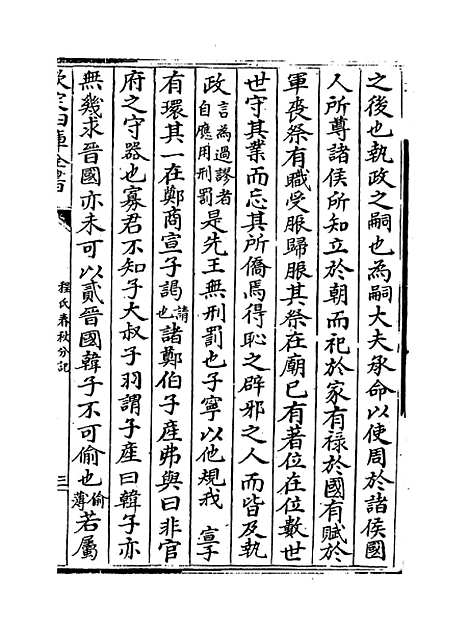 之後也執政之嗣也為嗣大夫承命以使周於諸侯國
人所尊諸侯所知立於朝而祀於家有禄於國有賦於
軍喪祭有職受脤歸脤其祭在廟已有著位在位數世
世守其業而忘其所僑焉得恥之辟邪之人而皆及執
政言為過謬者自應用刑罰是先王無刑罰也子寧以他規我 宣子
有環其一在鄭商宣子謁請也諸鄭伯子產弗與曰非官
府之守器也寡君不知子大叔子羽謂子產曰韓子亦
無幾求晉國亦未可以貳晉國韓子不可偷也偷薄若屬
欽定四庫全書
程氏春秋分記
三